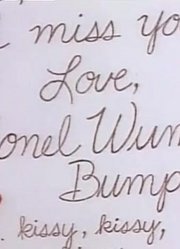 miss yo
Love,
onel Wum
Bump
kissy, kissy,